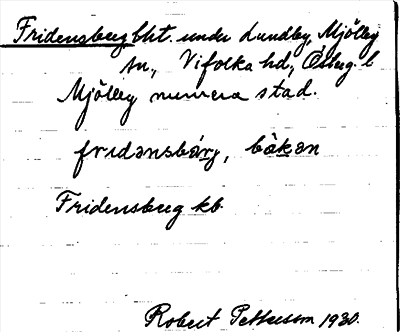 Fridensberg bht. under Lundby, Mjölby
sn., Vifolka hd., Östug. l
Mjölby numera stad.
fridənsbärj, båkən
Fridensberg kb
Robert Petterson 1930.